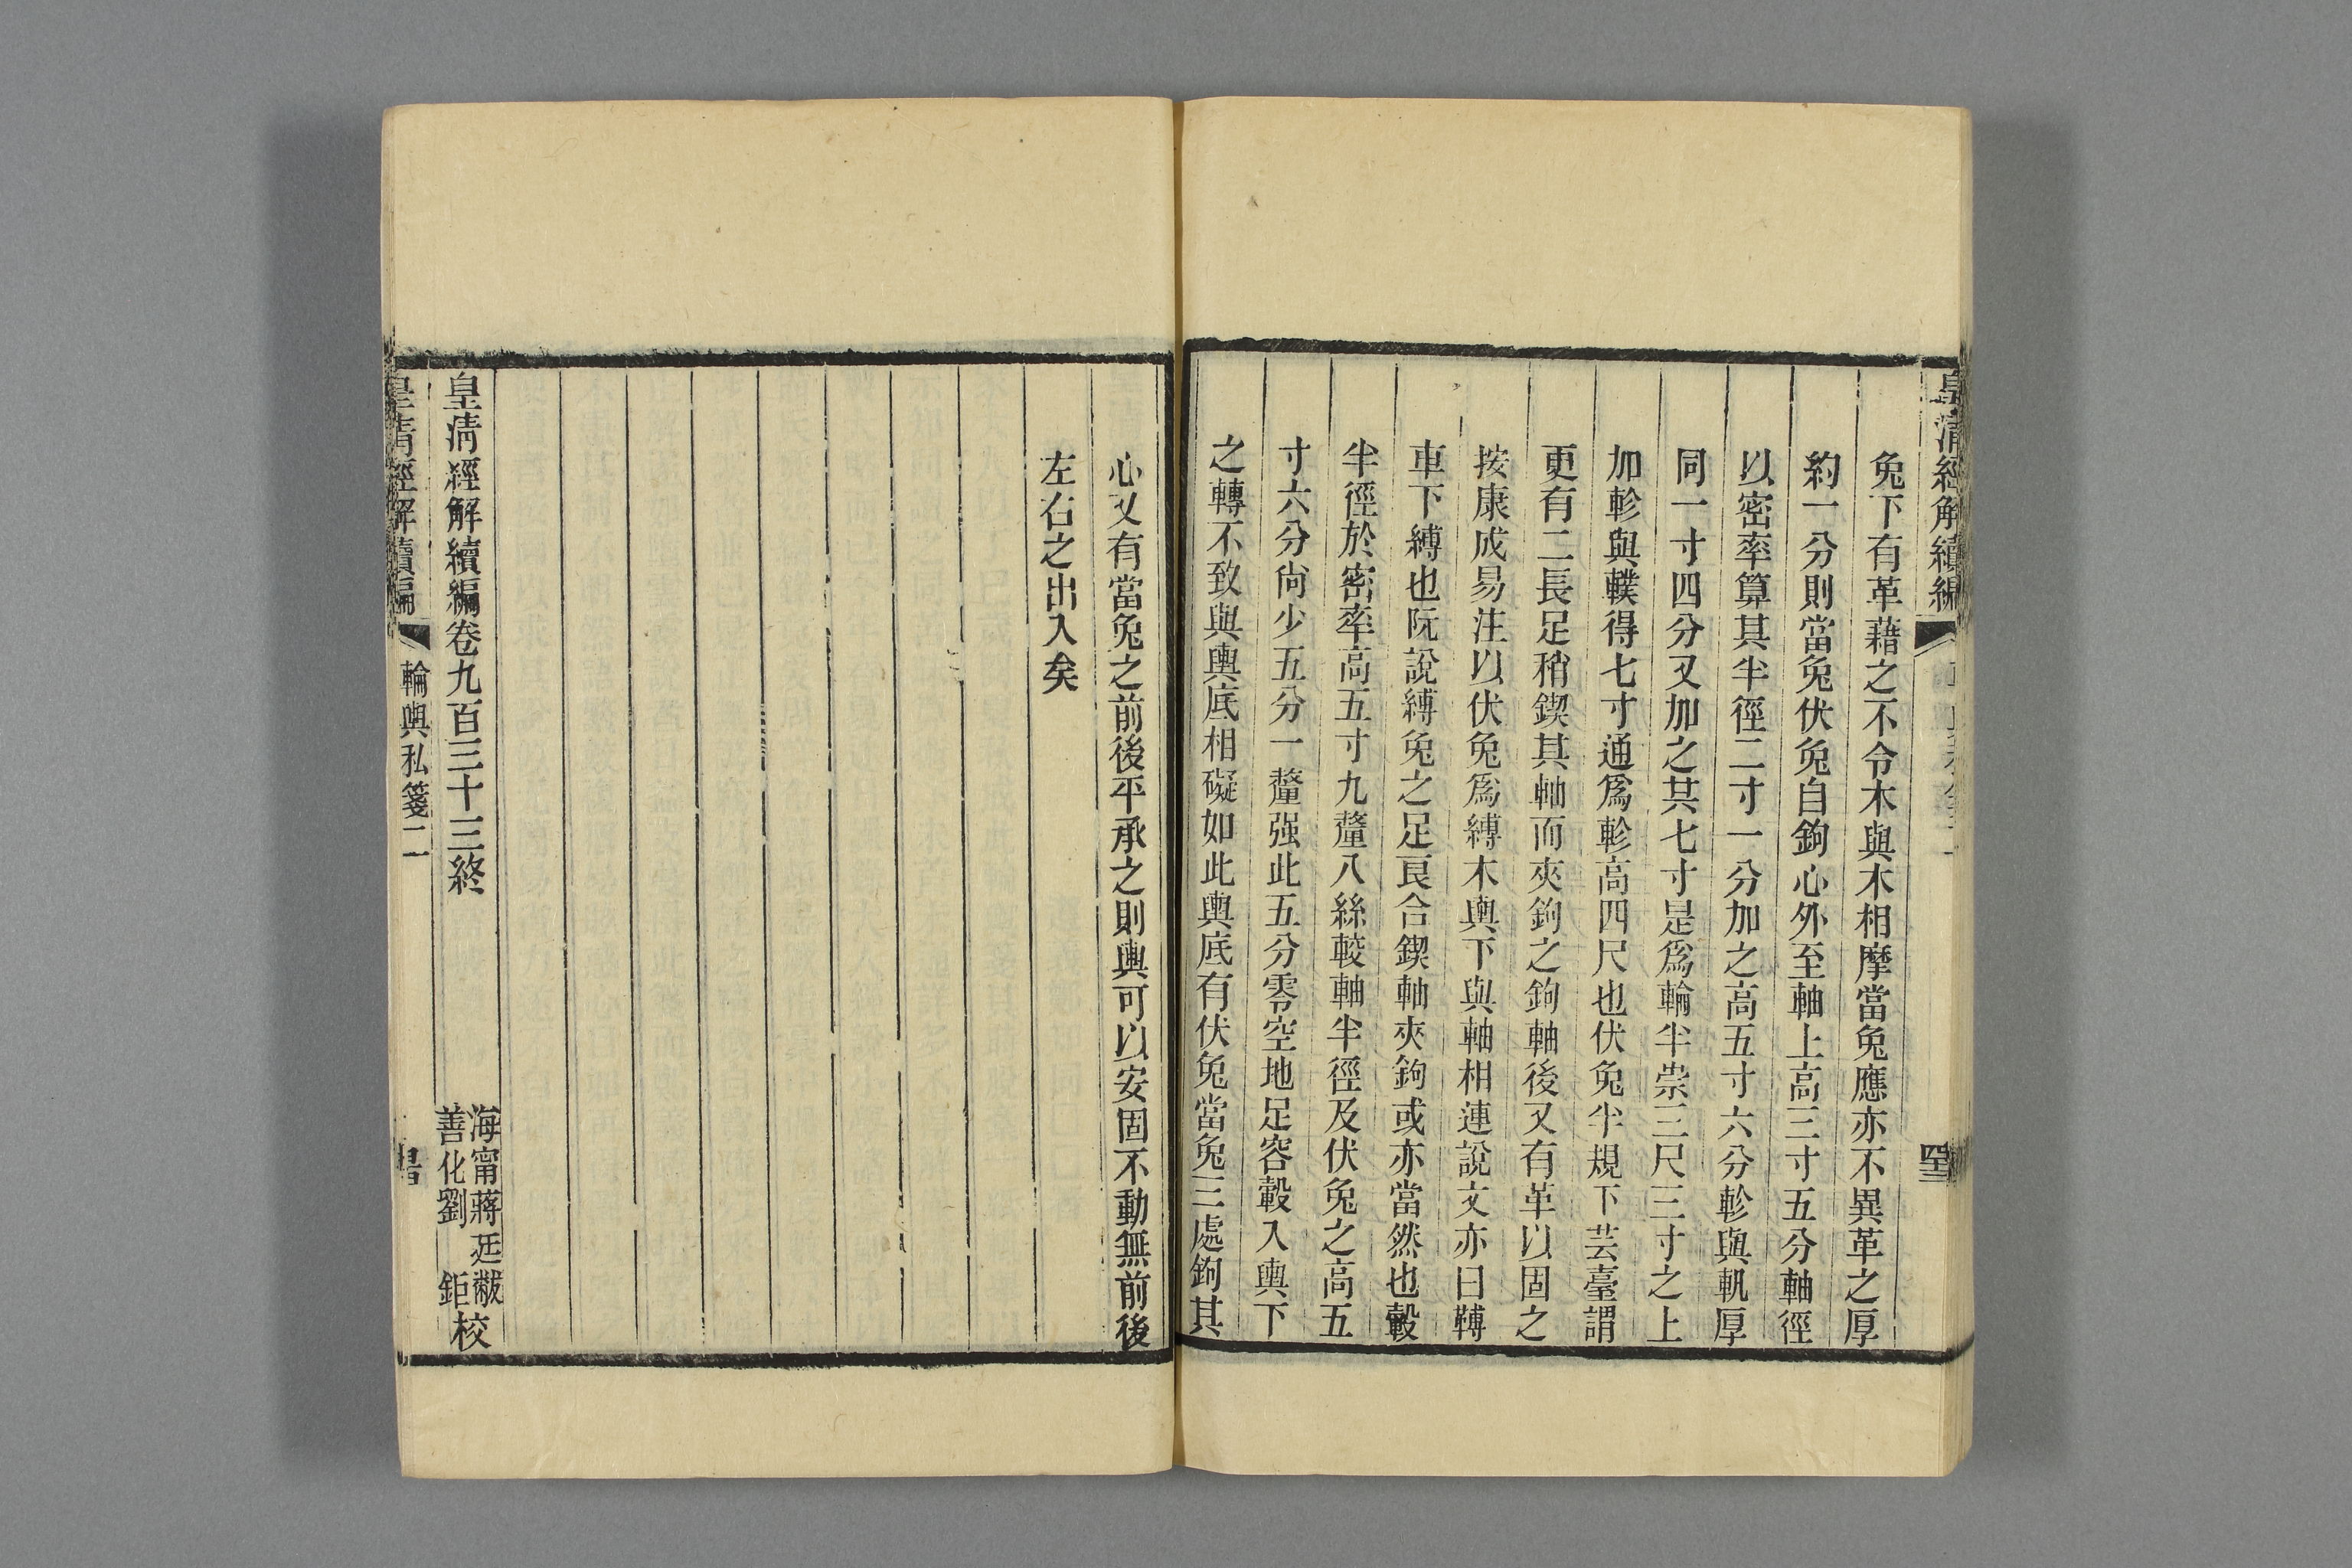 皇清經解續編
兔下有革藉之不令木與木相摩當兔應亦不異革之厚
約一分則當兔伏兔自鉤心外至軸上高三寸五分軸徑
以密率算其半徑二寸一分加之高五寸六分軫與軓厚
同一寸四分又加之其七寸是爲輪半崇三尺三寸之上
加軫與轐得七寸通爲軫高四尺也伏兔半規下芸臺謂
更有二長足稍鍥其軸而夾鉤之鉤軸後又有革以固之
按康成易注以伏兔爲縛木輿下與軸相連說文亦曰轉
車下縛也阮說縛兔之足良合鍥軸夾鉤或亦當然也轂
半徑於密率高五寸九釐八絲較軸半徑及伏兔之高五
寸六分尚少五分一釐强此五分零空地足容轂入輿下
之轉不致與輿底相礙如此輿底有伏兔當兔三處鉤其
心又有當兔之前後平承之則輿可以安固不動無前後
左右之出入矣
皇清經解續編卷九百三十三終
海甯蔣廷黻
善化劉鉅校
皇清經解續編
輪輿私箋二